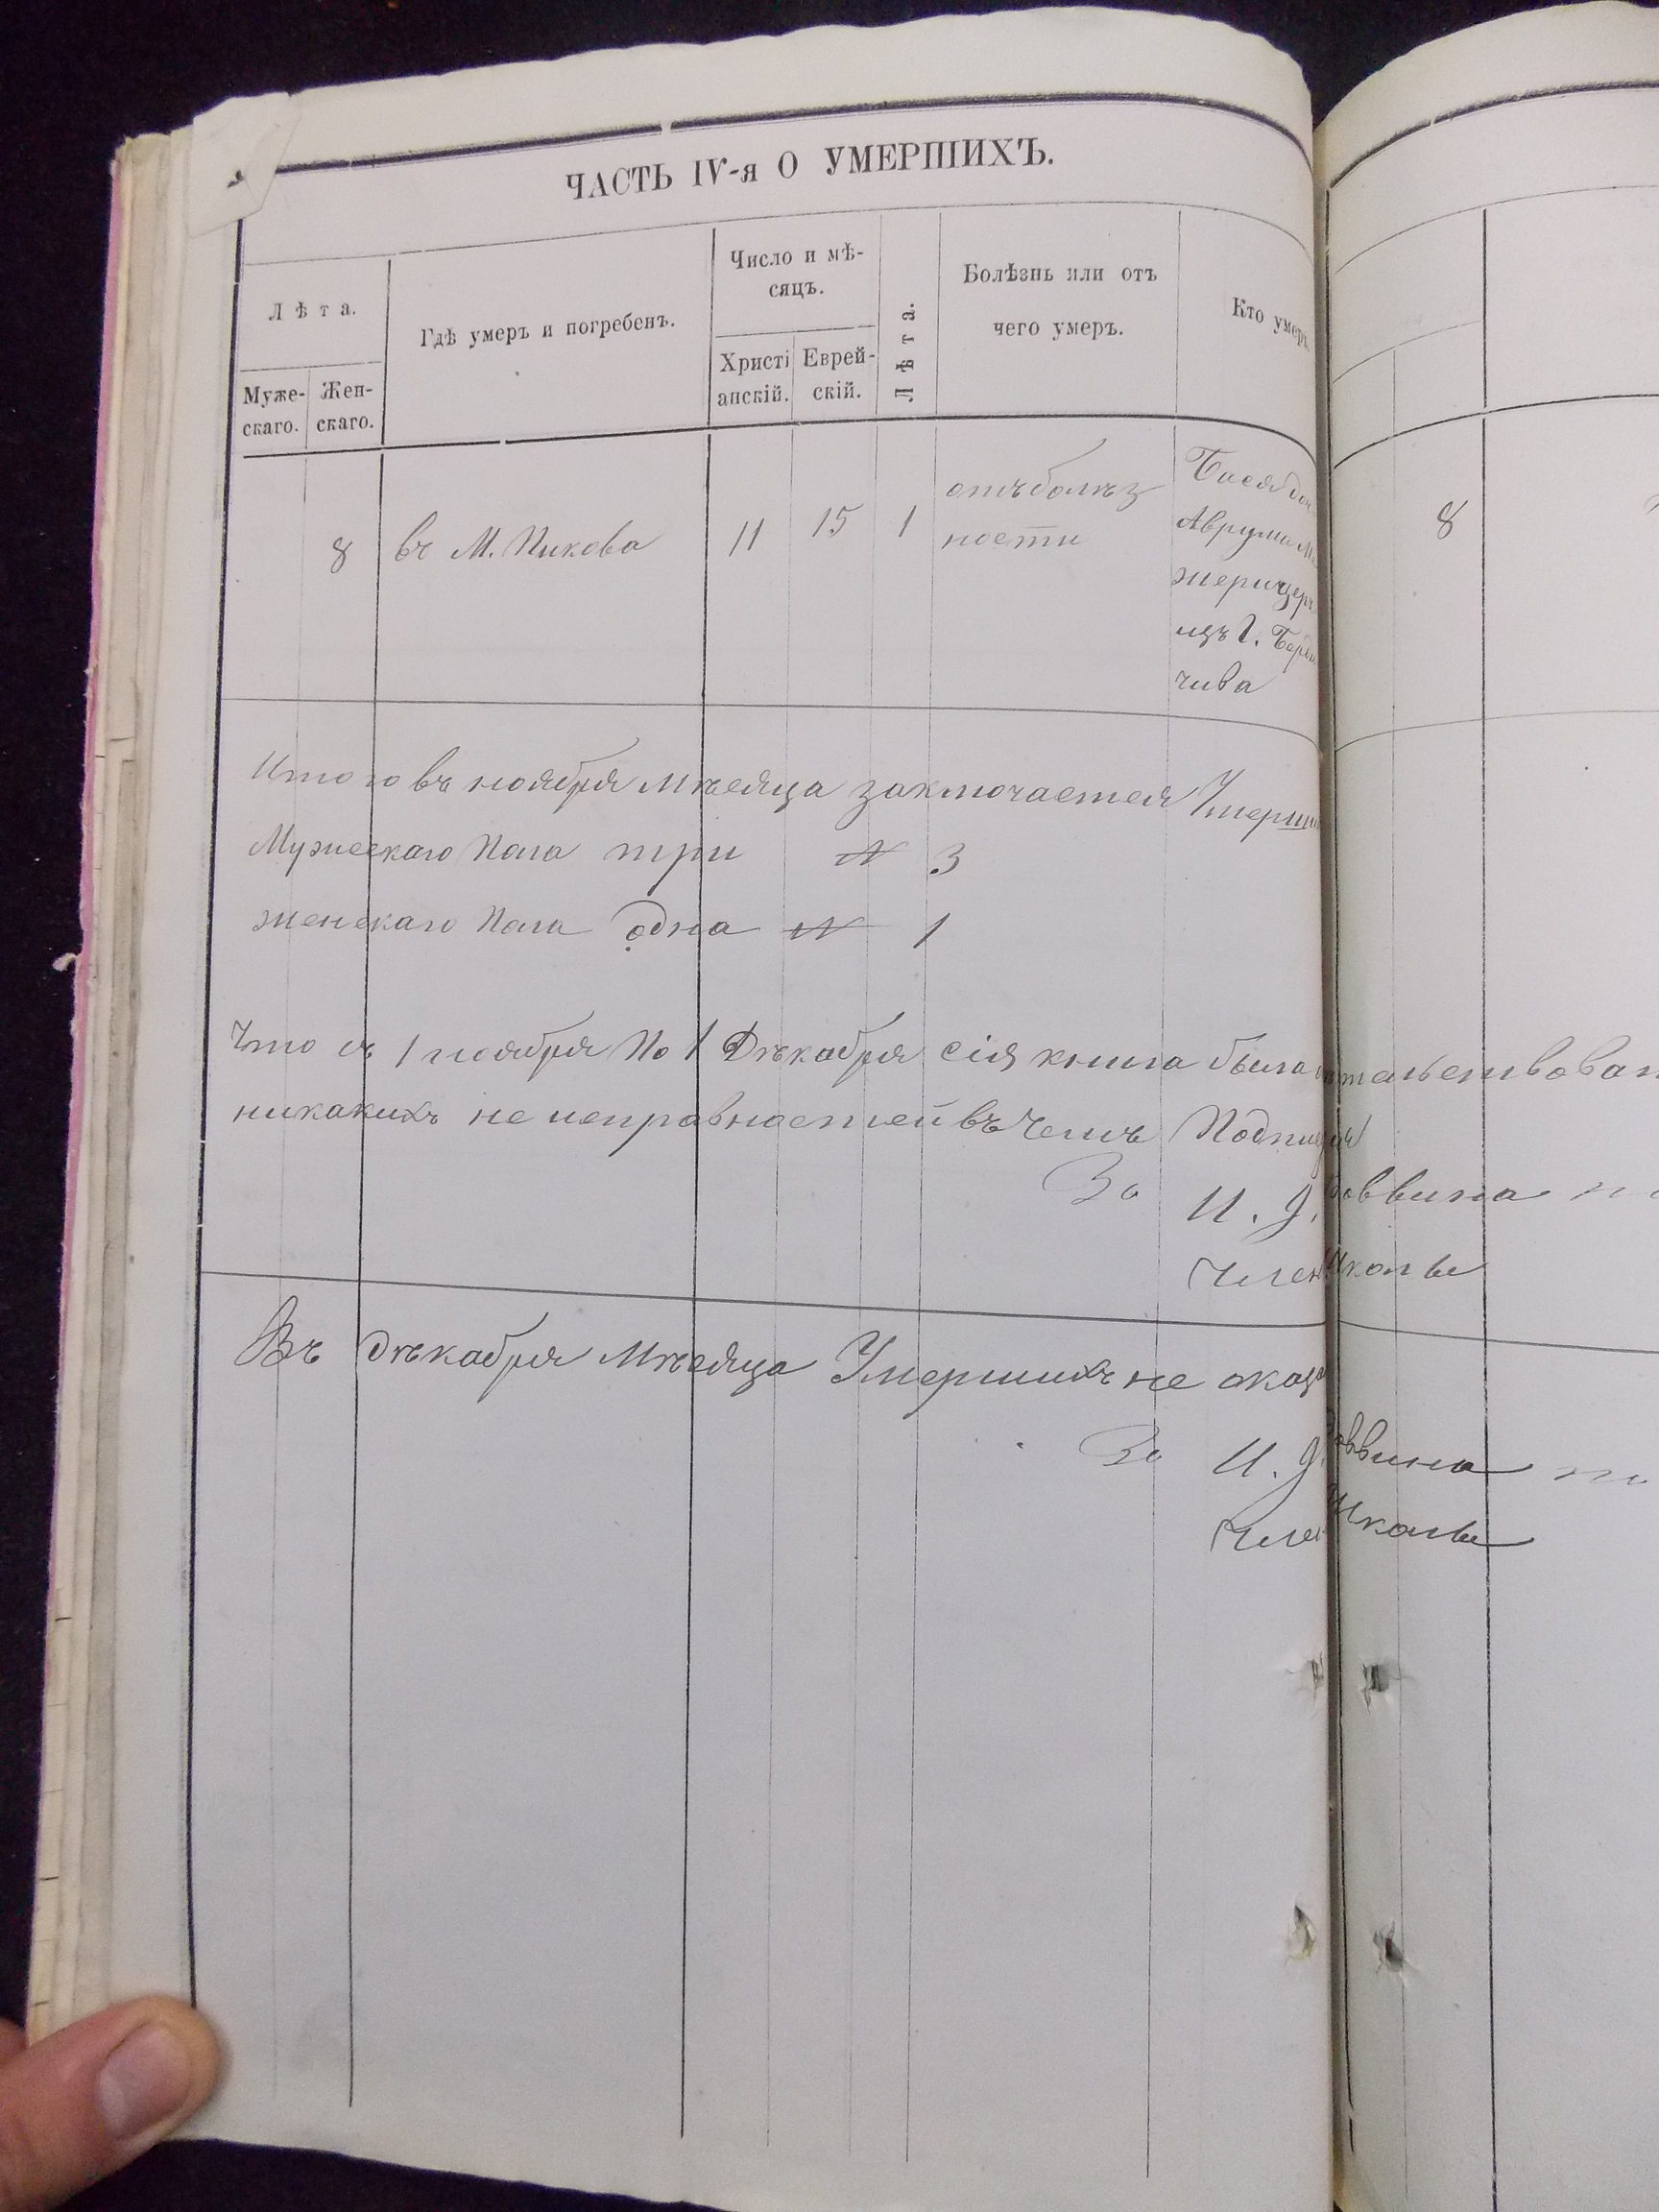 ЧАСТЬ IV-я О УМЕРШИХЪ.
Лѣта.
Муже-
скаго.
Жен-
скаго.
Гдѣ умеръ и погребенъ.
Число и мѣ-
сяцъ.
Христі
анскій.
Еврей-
скій.
Лѣта.
Болѣзнь или отъ
чего умеръ.
Кто умеръ.
8
въ М. Пикова
11
15
1
отъ болѣз
ности
Бася доч
Аврума М
жеричеръ
изъ г. Берди
чива
8
Итого въ ноября мѣсяца заключается Умерши
Мужескаго Пола три № 3
женскаго Пола одна № 1
Что съ 1 ноября По 1 Дѣкабря сія книга была тельствован
никакихъ не исправностей въ чемъ Подпис
За И. Д. Раввина
Член Школы
Въ Дѣкабря мѣсяца Умершихъ не оказ
За И. Д. Раввина
Член Школы